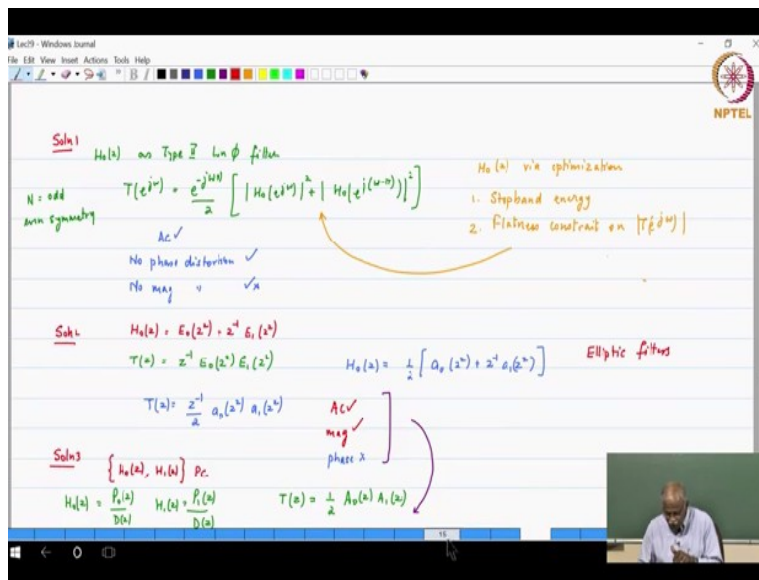 Lec19 - Windows Journal
File Edit View Insert Actions Tools Help
NPTEL
Soln 1 H₀(z) as Type II Lin φ filter
N = odd
even symmetry
T(e^{jω}) = e^{-jωN}/2 [ |H₀(e^{jω})|² + |H₀(e^{j(ω-π)})|² ]
AC ✓
No phase distortion ✓
No mag " ✓x
H₀(z) via optimization
1. Stopband energy
2. Flatness constrait on |T(e^{jω})|
Soln 2 H₀(z) = E₀(z²) + z⁻¹ E₁(z²)
T(z) = z⁻¹ E₀(z²) E₁(z²)
H₀(z) = 1/2 [ a₀(z²) + z⁻¹ a₁(z²) ]
Elliptic filters
T(z) = z⁻¹/2 a₀(z²) a₁(z²)
AC ✓
mag ✓
phase x
Soln 3 {H₀(z), H₁(z)} PC
H₀(z) = P₀(z)/D(z) H₁(z) = P₁(z)/D(z) T(z) = 1/2 A₀(z) A₁(z)
15